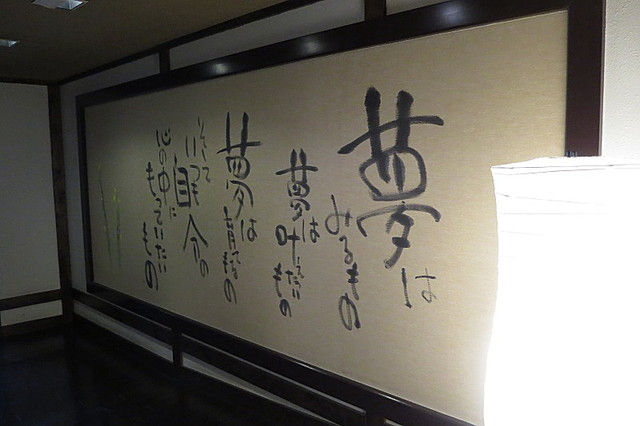 夢は
みるもの
夢は
叶えたいもの
夢は
語るもの
そして
いつも
自分の
心の中に
もっていたい
もの